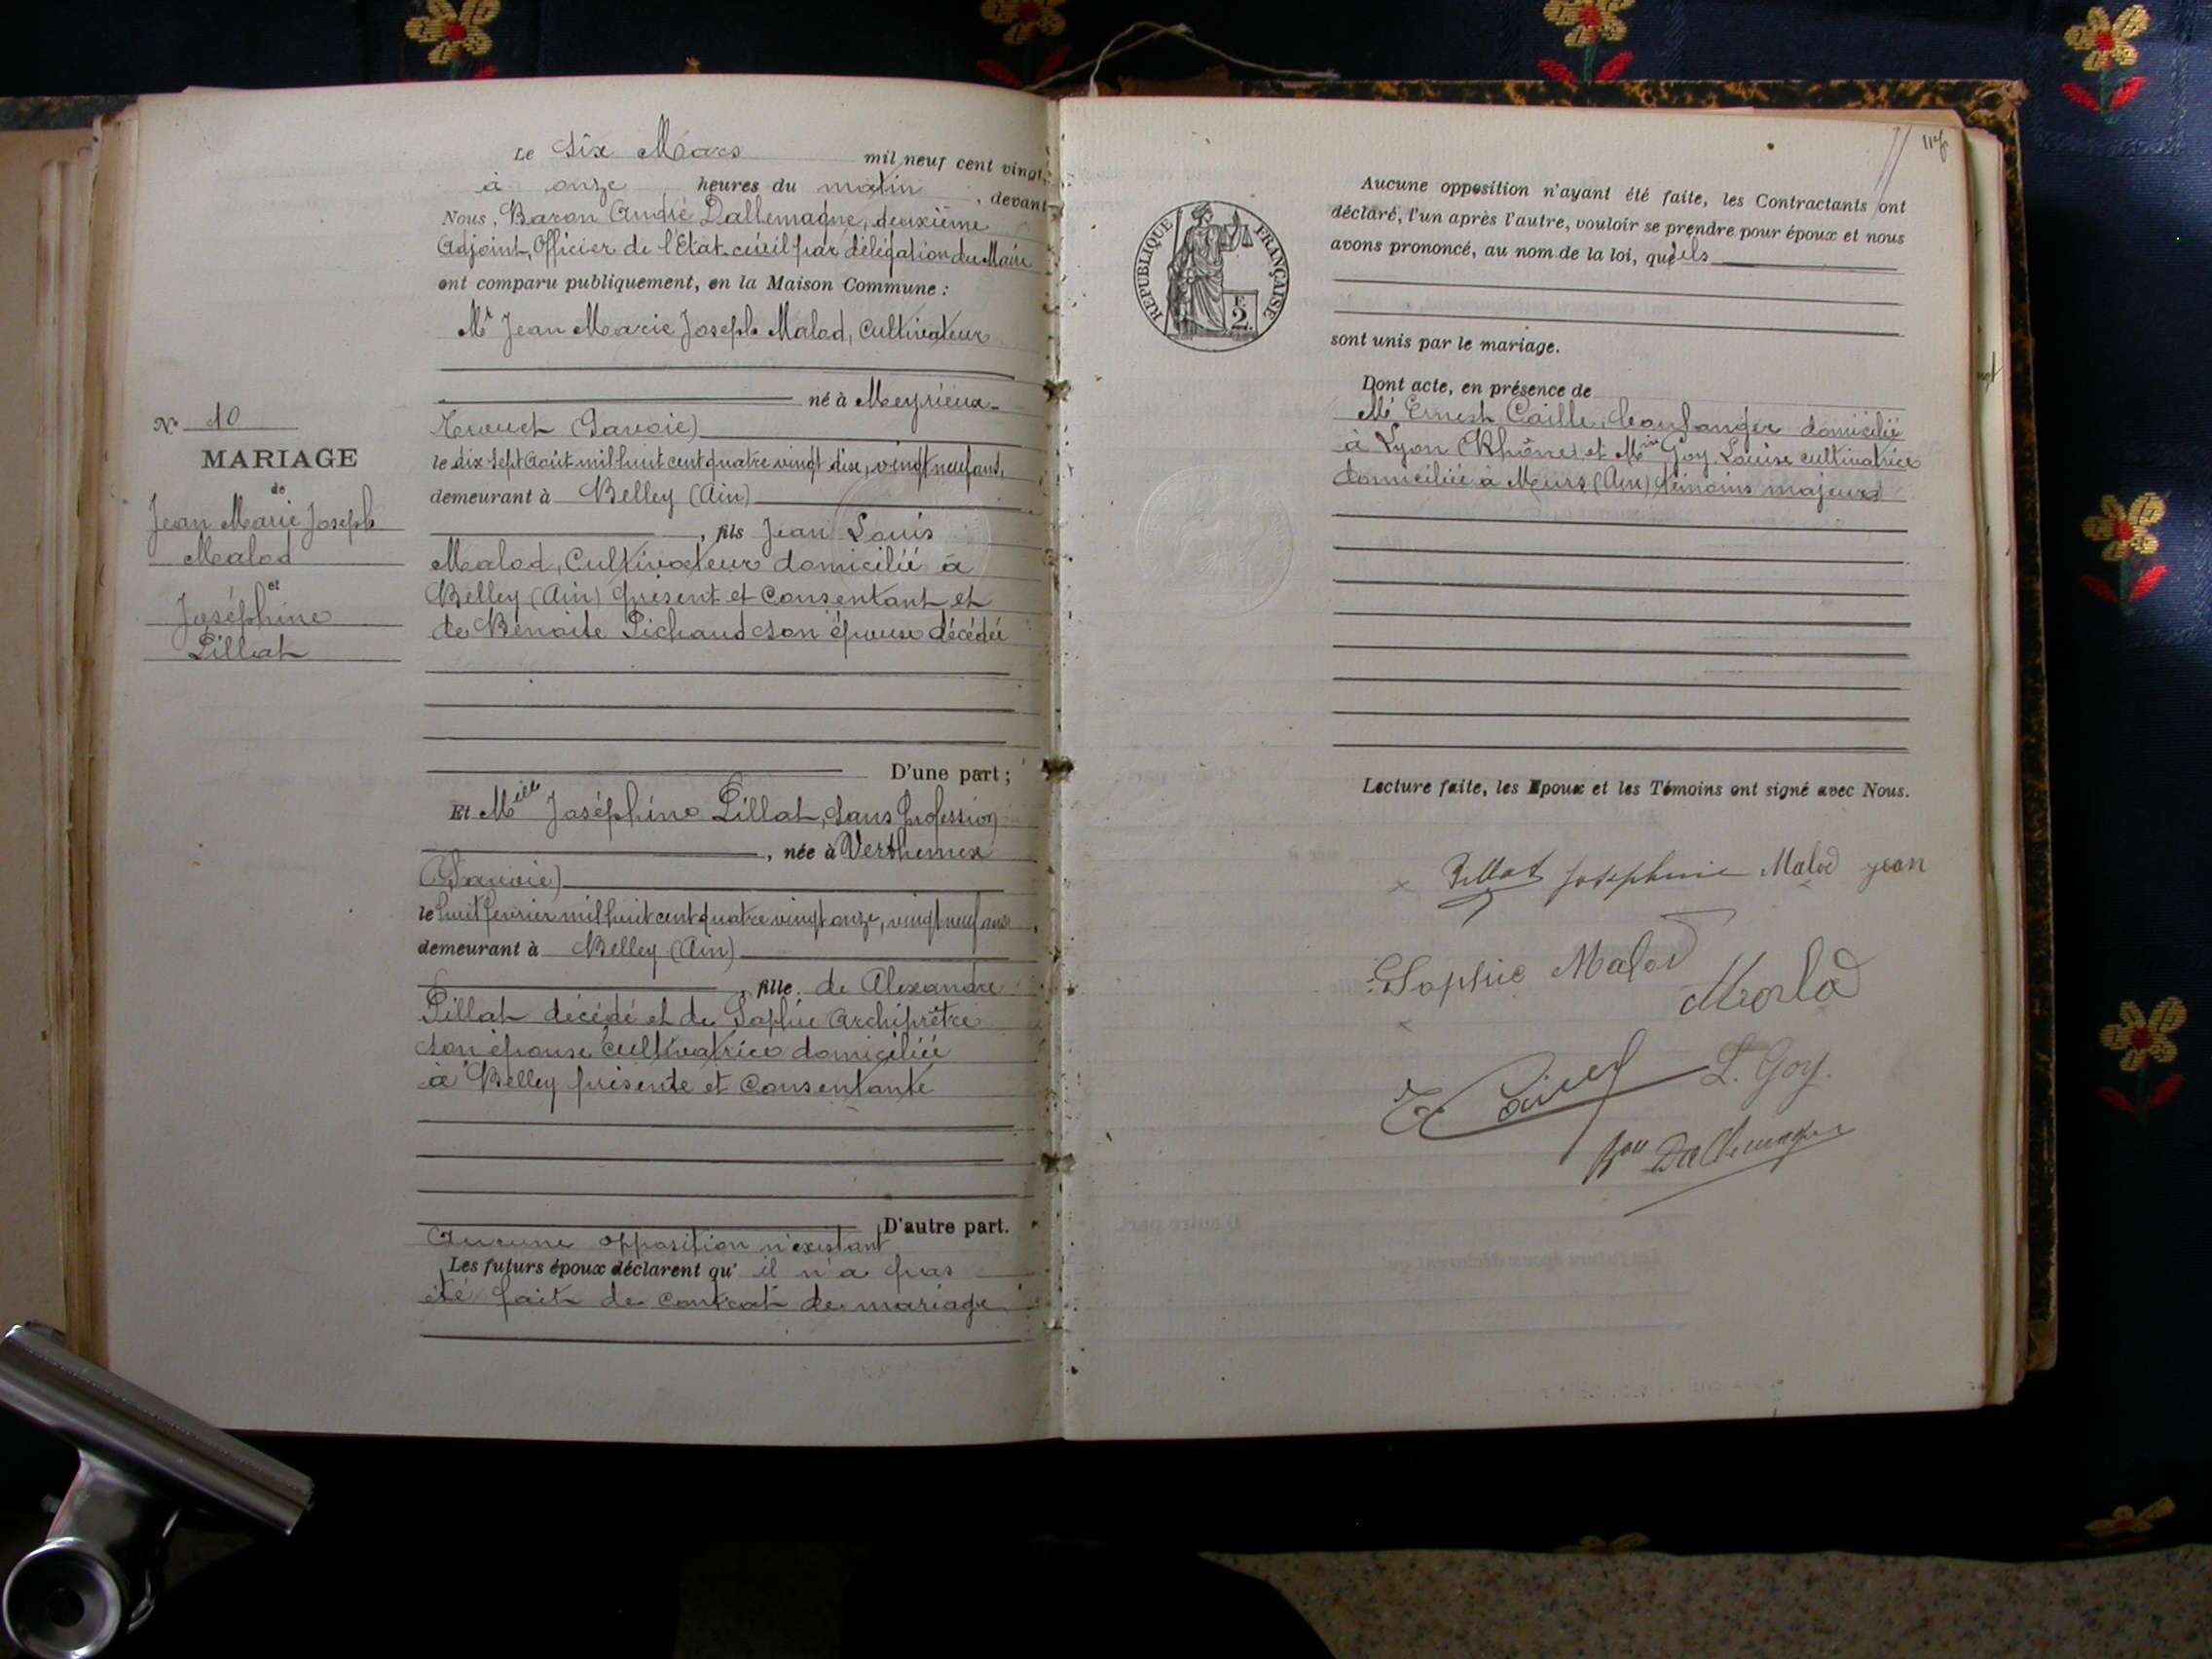 Le Six Mars mil neuf cent vingt,
à onze heures du matin, devant
Nous, Baron André Dallemagne, deuxième
Adjoint, Officier de l'Etat-civil par délégation du Maire
ont comparu publiquement, en la Maison Commune :
Mr Jean Marie Joseph Malod, Cultivateur
né à Meyrieux-
Trouet (Savoie)
le dix sept Août mil huit cent quatre vingt dix, vingt neuf ans,
demeurant à Belley (Ain)
, fils Jean Louis
Malod, Cultivateur domicilié à
Belley (Ain) présent et consentant et
de Benoite Pichaud son épouse décédée
D'une part ;
N° 10
MARIAGE
de
Jean Marie Joseph
Malod
et
Joséphine
Pillat
Et Melle Joséphine Pillat, sans profession
, née à Verthemex
(Savoie)
le huit fevrier mil huit cent quatre vingt onze, vingt neuf ans,
demeurant à Belley (Ain)
, fille de Alexandre
Pillat décédé et de Sophie Archiprêtre
son épouse cultivatrice domiciliée
à Belley présente et consentante
D'autre part.
Aucune opposition n'existant
Les futurs époux déclarent qu'il n'a pas
été fait de contrat de mariage
117
REPUBLIQUE FRANÇAISE
F.
2.
Aucune opposition n'ayant été faite, les Contractants ont
déclaré, l'un après l'autre, vouloir se prendre pour époux et nous
avons prononcé, au nom de la loi, qu'ils
sont unis par le mariage.
Dont acte, en présence de
Mr Ernest Caille, boulanger domicilié
à Lyon (Rhône) et Goy Louise cultivatrice
domiciliée à Meurs (Ain) témoins majeurs
Lecture faite, les Epoux et les Témoins ont signé avec Nous.
Pillat Josephine Malod jean
Sophie Malod
Malod
L. Goy.
Bon Dallemagne